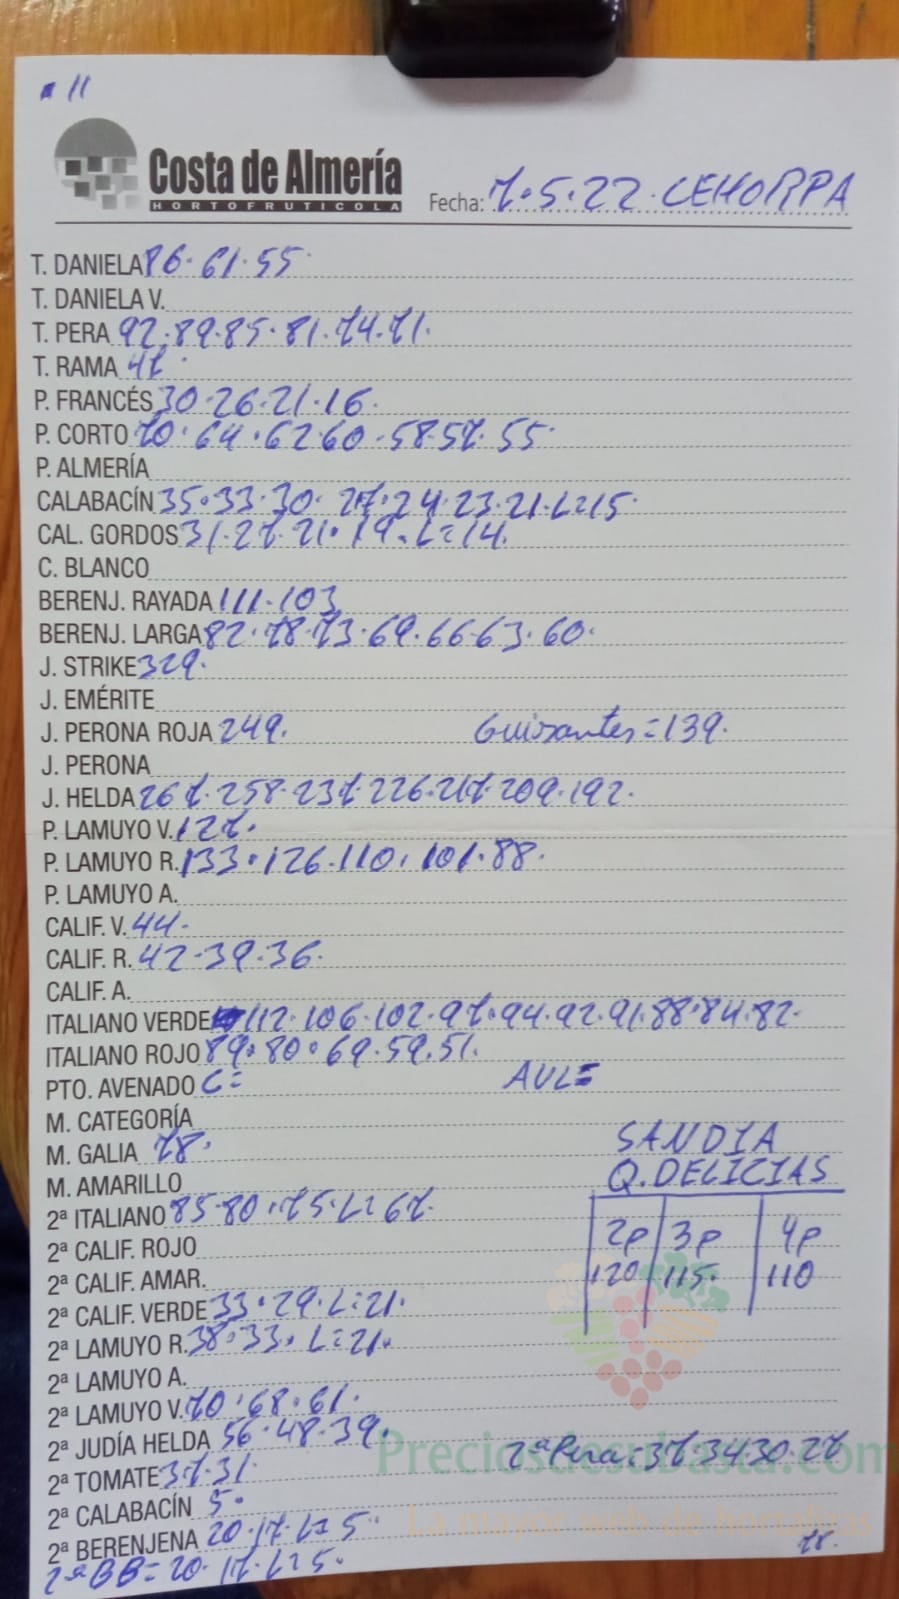 11
Costa de Almería
HORTOFRUTICOLA
Fecha: 7.5.22. CEHORPA
T. DANIELA 86. 61. 55.
T. DANIELA V.
T. PERA 92. 89. 85. 81. 74. 71.
T. RAMA 47
P. FRANCÉS 30. 26. 21. 16.
P. CORTO 70. 64. 62. 60. 58. 57. 55.
P. ALMERÍA
CALABACÍN 35. 33. 30. 27. 24. 23. 21. L=15.
CAL. GORDOS 31. 27. 21. 19. L=14.
C. BLANCO
BERENJ. RAYADA 111. 103
BERENJ. LARGA 82. 78. 73. 69. 66. 63. 60.
J. STRIKE 329.
J. EMÉRITE
J. PERONA ROJA 249. Guisantes=139.
J. PERONA
J. HELDA 267. 258. 237. 226. 217. 209. 192.
P. LAMUYO V. 127.
P. LAMUYO R. 133. 126. 110. 101. 88.
P. LAMUYO A.
CALIF. V. 44.
CALIF. R. 42. 39. 36.
CALIF. A.
ITALIANO VERDE 112. 106. 102. 97. 94. 92. 91. 88. 84. 82.
ITALIANO ROJO 89. 80. 69. 59. 51.
PTO. AVENADO C= AVL=
M. CATEGORÍA
M. GALIA 78.
M. AMARILLO
2ª ITALIANO 85. 80. 75. L=67.
2ª CALIF. ROJO
2ª CALIF. AMAR.
2ª CALIF. VERDE 33. 29. L=21.
2ª LAMUYO R. 38. 33. L=21.
2ª LAMUYO A.
2ª LAMUYO V. 70. 68. 61.
2ª JUDÍA HELDA 56. 48. 39.
2ª TOMATE 37. 31.
2ª CALABACÍN 5.
2ª BERENJENA 20. 17. L=5.
2ª BB=20. 17. L=5.
SANDIA
Q. DELICIAS
2p 3p 4p
120 115. 110
2ª Pera: 37. 34. 30. 27
Preciosdesubasta.com
La mayor web de hortalizas